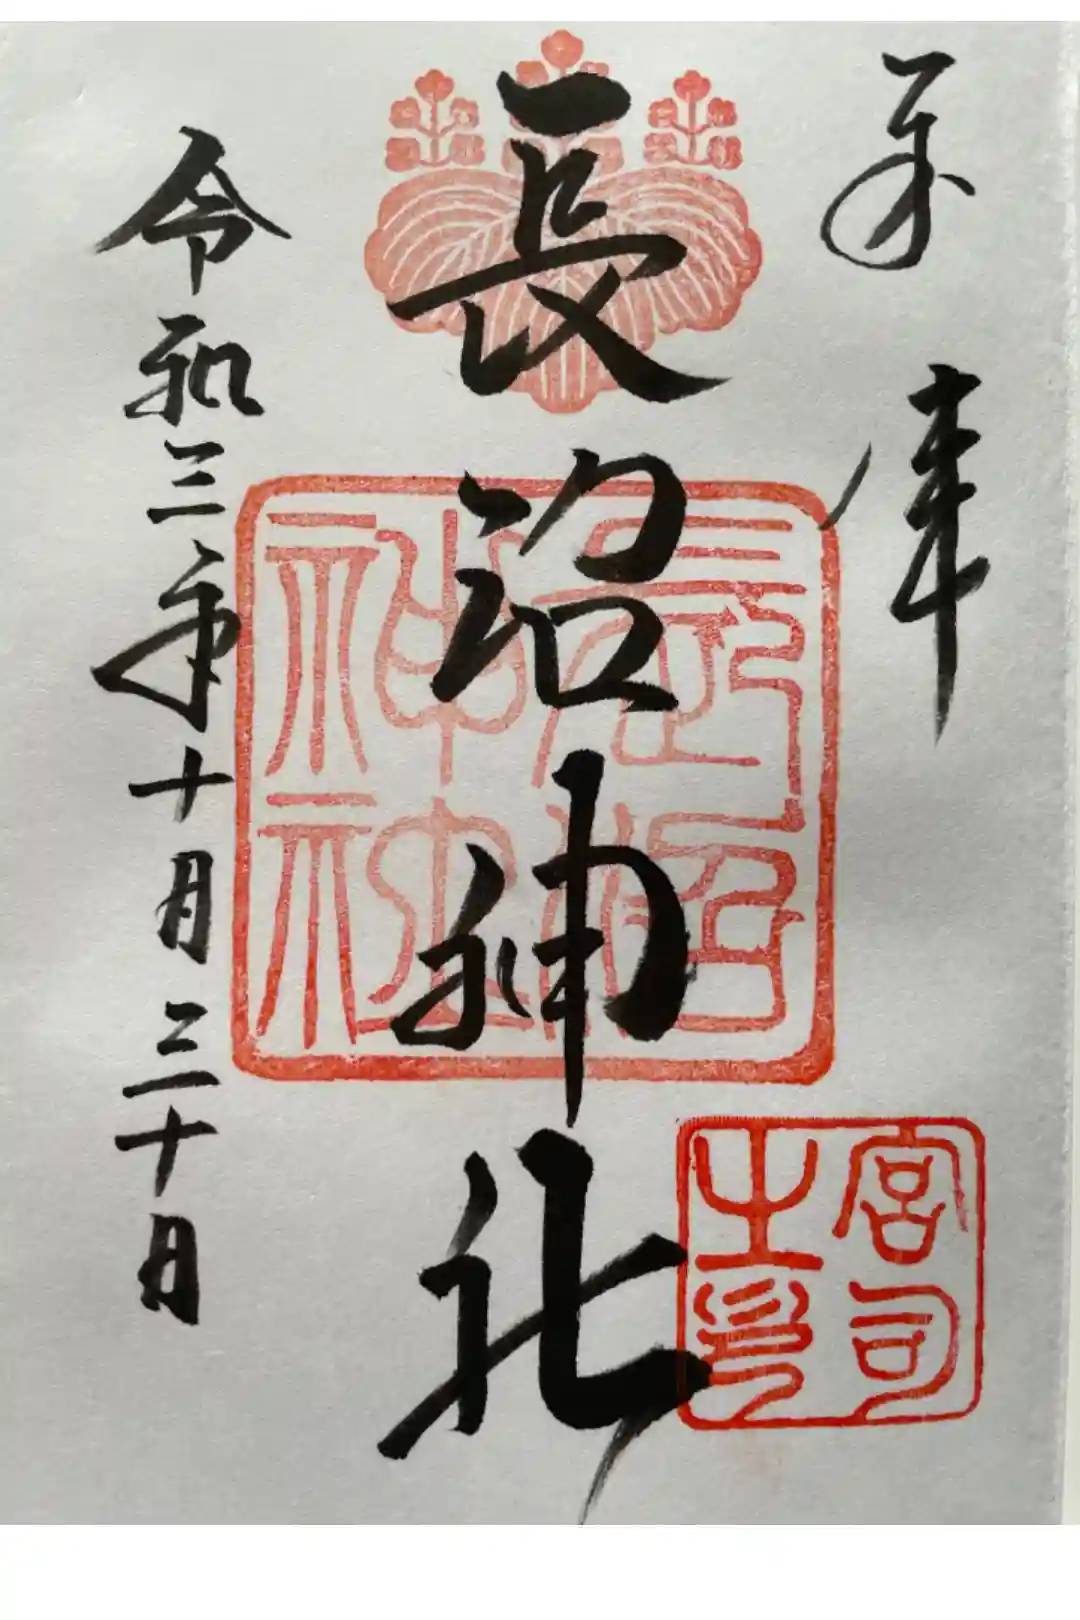 奉拝
長沼神社
令和三年十月三十日
長沼神社
宮司之印